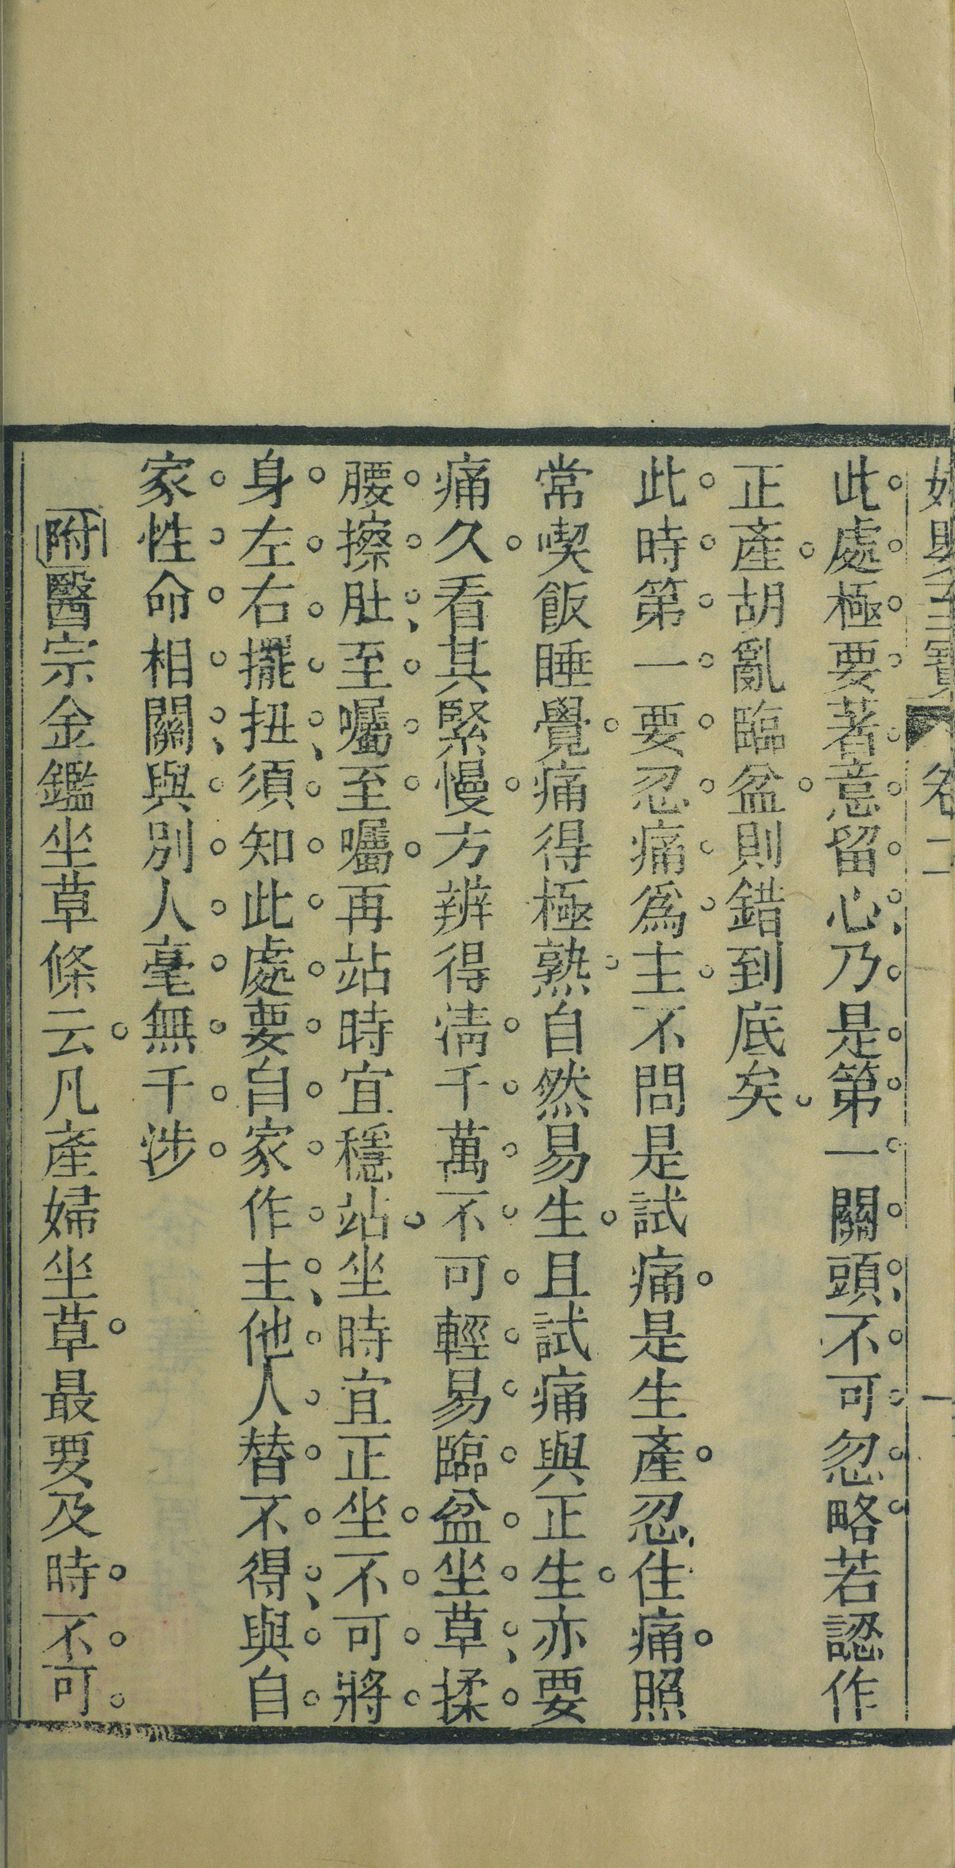 寶 卷二 一
此處極要著意留心乃是第一關頭不可忽略若認作
正產胡亂臨盆則錯到底矣
此時第一要忍痛爲主不問是試痛是生產忍住痛照
常喫飯睡覺痛得極熟自然易生且試痛與正生亦要
痛久看其緊慢方辨得清千萬不可輕易臨盆坐草揉
腰擦肚至囑至囑再站時宜穩站坐時宜正坐不可將
身左右擺扭須知此處要自家作主他人替不得與自
家性命相關與別人毫無干涉
附醫宗金鑑坐草條云凡產婦坐草最要及時不可